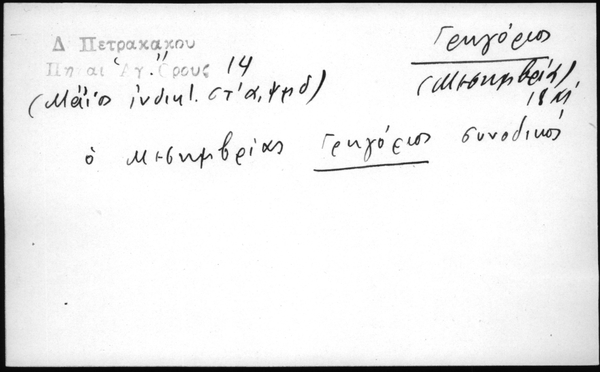 Δ Πετρακακου
Πηγαι Ἁγ. Ὄρους 14
(Μάϊος ἰνδικτ. στ' α,ψμδ)
Γρηγόριος
(Μεσημβρία)
18
ὁ Μεσημβρίας Γρηγόριος συνοδικός